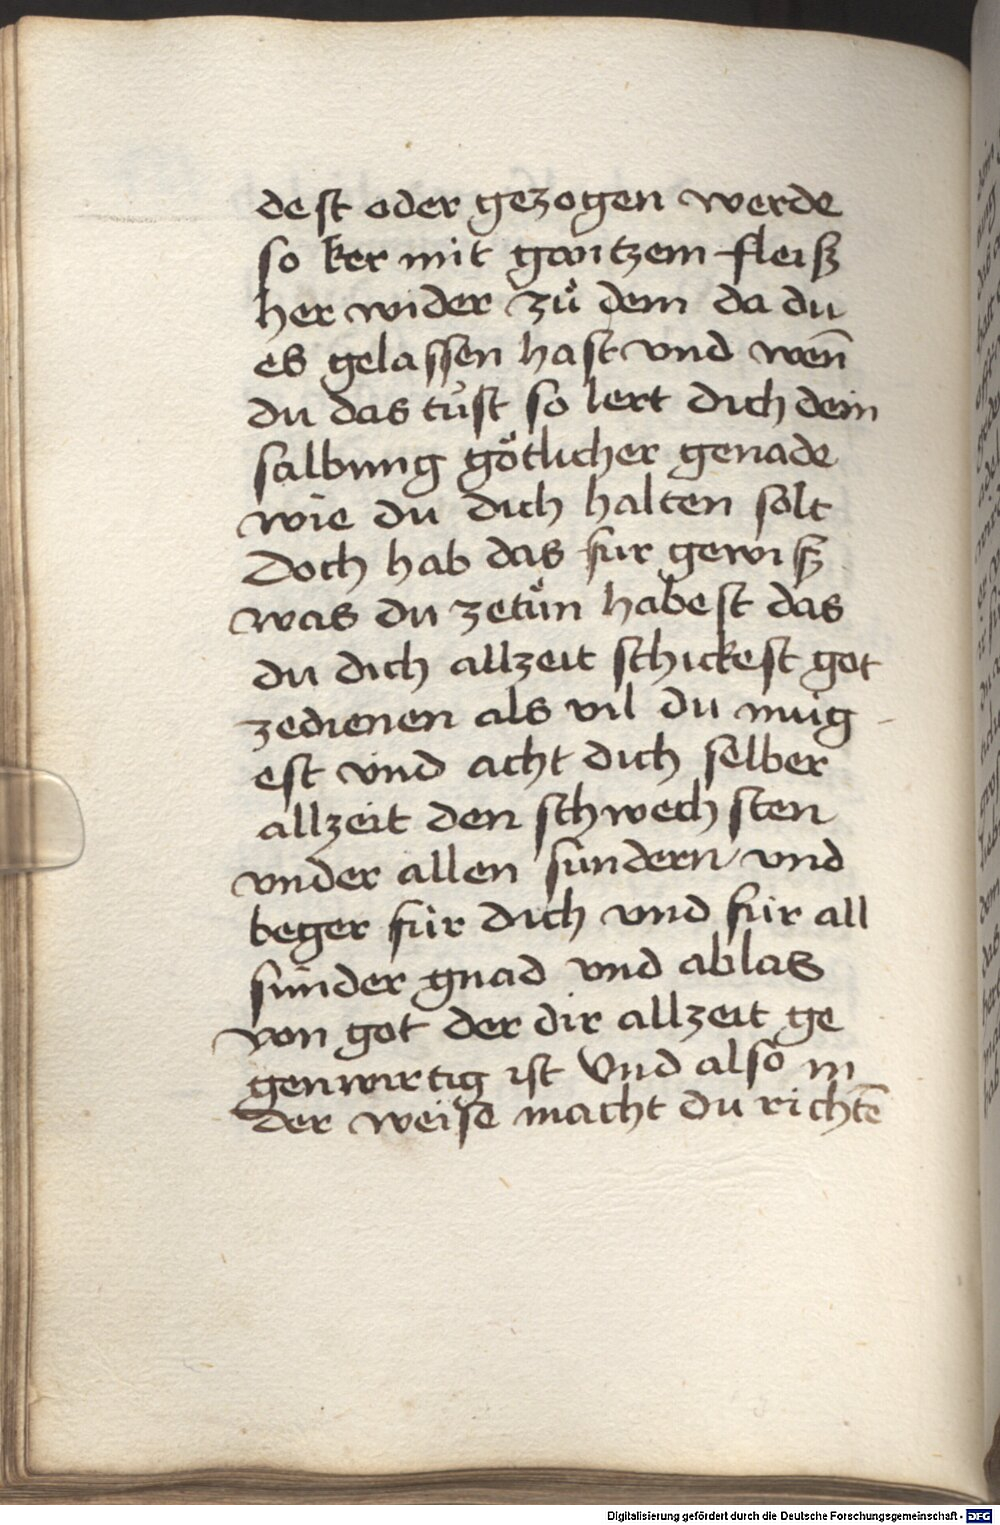 dest oder gezogen werde
so ker mit gantzem fleisz
her wider zů dem da du
es gelassen hast vnd wen̄
du das tůst so lert dich dein
salbung götlicher genade
wie du dich halten solt
Doch hab das fur gewisz
was du zetůn habest das
du dich allzeit schickest got
zedienen als vil du mug
est vnd acht dich selber
allzeit den schwechsten
vnder allen sundern vnd
beger für dich vnd für all
sünder gnad vnd ablas
von got der dir allzeit ge
genwirtig ist Vnd also in
der weise macht du richtē
Digitalisierung gefördert durch die Deutsche Forschungsgemeinschaft - DFG